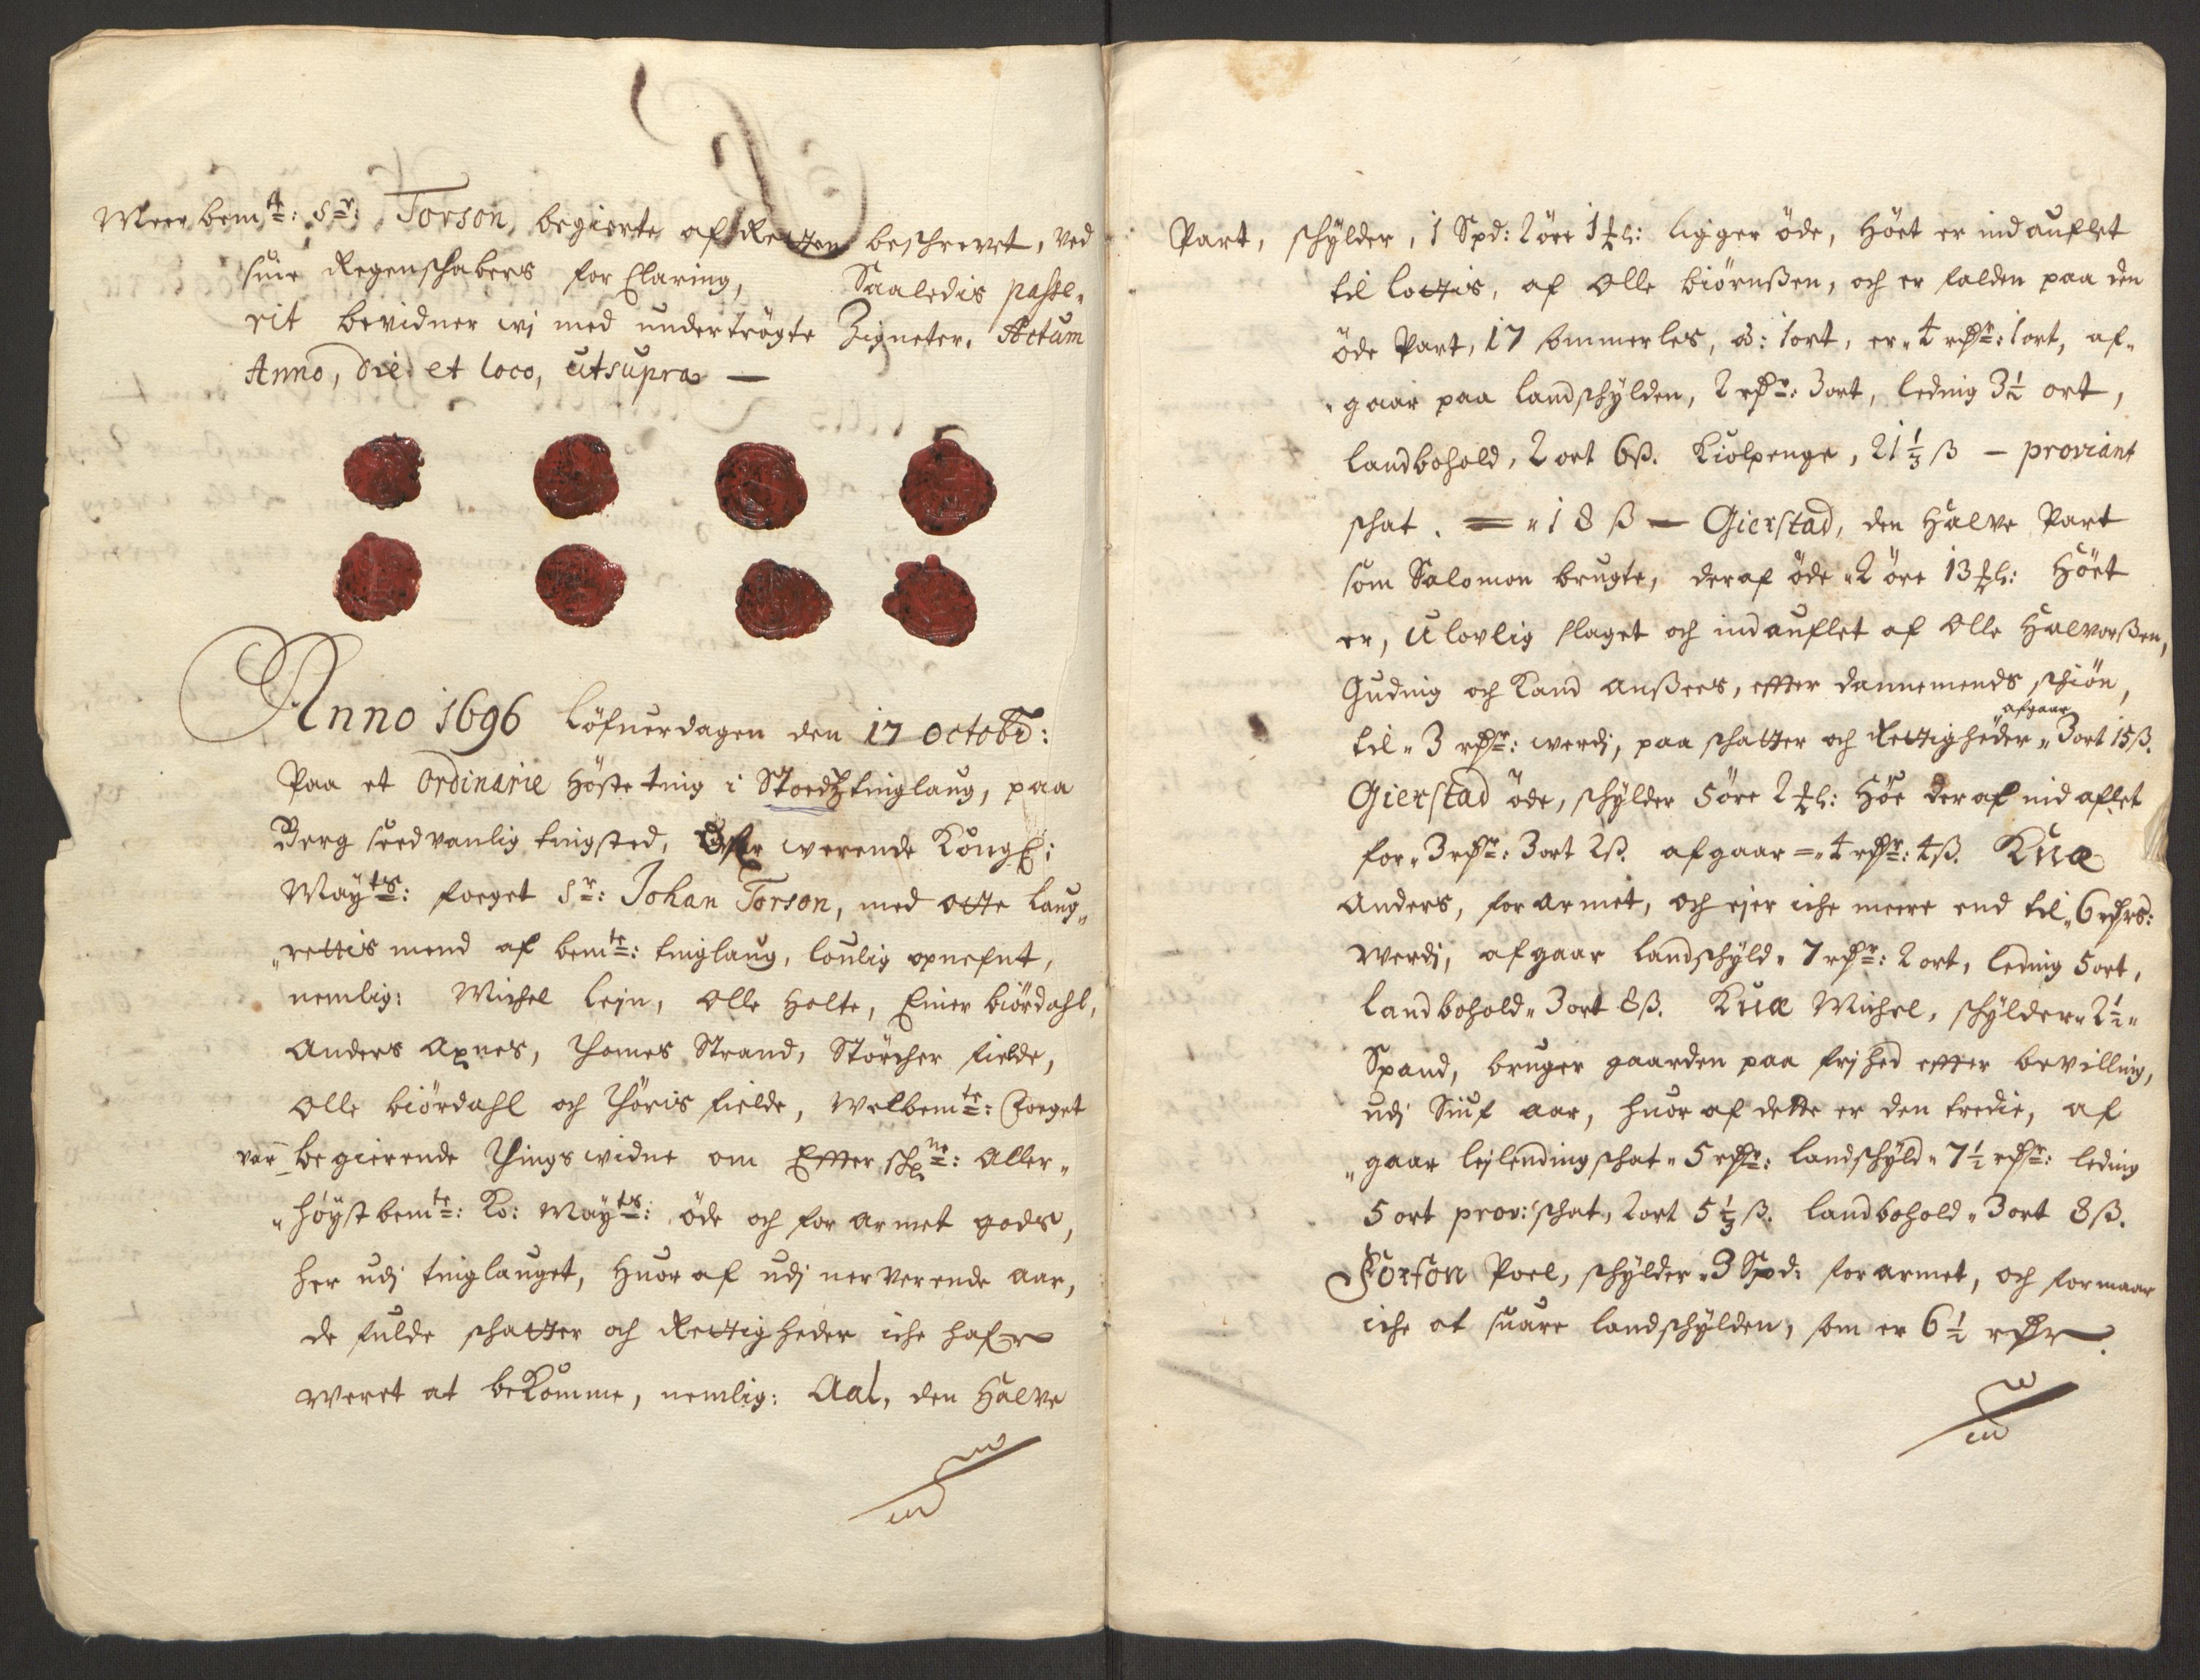 Meerbem:te: Sr: Torson, begierte af Retten beschrevet, ved
sine Regenschabers for Claring, Saaledis passe-
rit bevidner wj med undertrögte Zigneter. Actum
Anno, die et loco, ut supra —
Anno 1696 Löfuerdagen den 17 Octobr:
Paa et Ordinarie Höste ting i Stoedtz tinglaug, paa
Berg sedvanlig tingsted, Ofuer werende Kongl:
Mayts: foeget Sr: Johan Torson, med otte laug-
„rettis mend af bemte: tinglaug, loulig opnefnt,
nemlig: Michel lejn, Olle Holte, Einer biördahl,
Anders Axnes, Thomes Strand, Störcher fielde,
Olle biördahl och Thöris fielde, Welbemte: foeget
var begierende Tingswidne om Effterschne: Aller-
„höyst bemte: Ko: Mayts: öde och forarmet gods,
her udj tinglauget, Huor af udj nerverende aar,
de fulde schatter och Rettigheder iche hafr
weret at bekomme, nemlig: Aal, den Halve
Part, schylder, 1 Spd: 2 öre 1 ℔: ligger öde, Höet er indauflet
til lottis, af Olle biörnßen, och er falden paa den
öde Part, 17 sommerles, â: 1 ort, er „ 4 rdr: 1 ort, af-
„gaar paa landschylden, 2 rdr: 3 ort, leding 3½ ort,
landbohold, 2 ort 6ß. Kiolpenge, 21⅓ ß – proviant
schat. = „ 18 ß — Gierstad, den Halve Part
som Salomon brugte, deraf öde „ 2 öre 13 ℔: Höet
er, Ulovlig slaget och indauflet af Olle Halvorßen,
Guding och Kand anßees, effter dannemends schiön,
til „ 3 rdr: werdj, paa schatter och Rettigheder afgaar „ 3 ort 15ß.
Gierstad öde, schylder 5 öre 2 ℔: Höe der af indaflet
for „ 3 rdr: 3 ort 2ß. afgaar = „ 4 rdr: 4ß. Kuæ
Anders, forarmet, och ejer iche meere end til „ 6 rdrs:
werdj, afgaar landschyld „ 7 rdr: 2 ort, leding 5 ort,
landbohold „ 3 ort 8ß. Kuæ Michel, schylder „ 2½ „
Spand, bruger gaarden paa frjhed effter bevilling,
udj Siuf aar, huor af dette er den tredie, af
„gaar lejlending schat „ 5 rdr: landschyld „ 7½ rdr: leding
5 ort prov: schat, 2 ort 5⅓ ß. landbohold „ 3 ort 8ß.
Forson Poel, schylder „ 3 Spd: forarmet, och formaar
iche at suare landschylden, som er 6½ rdr.